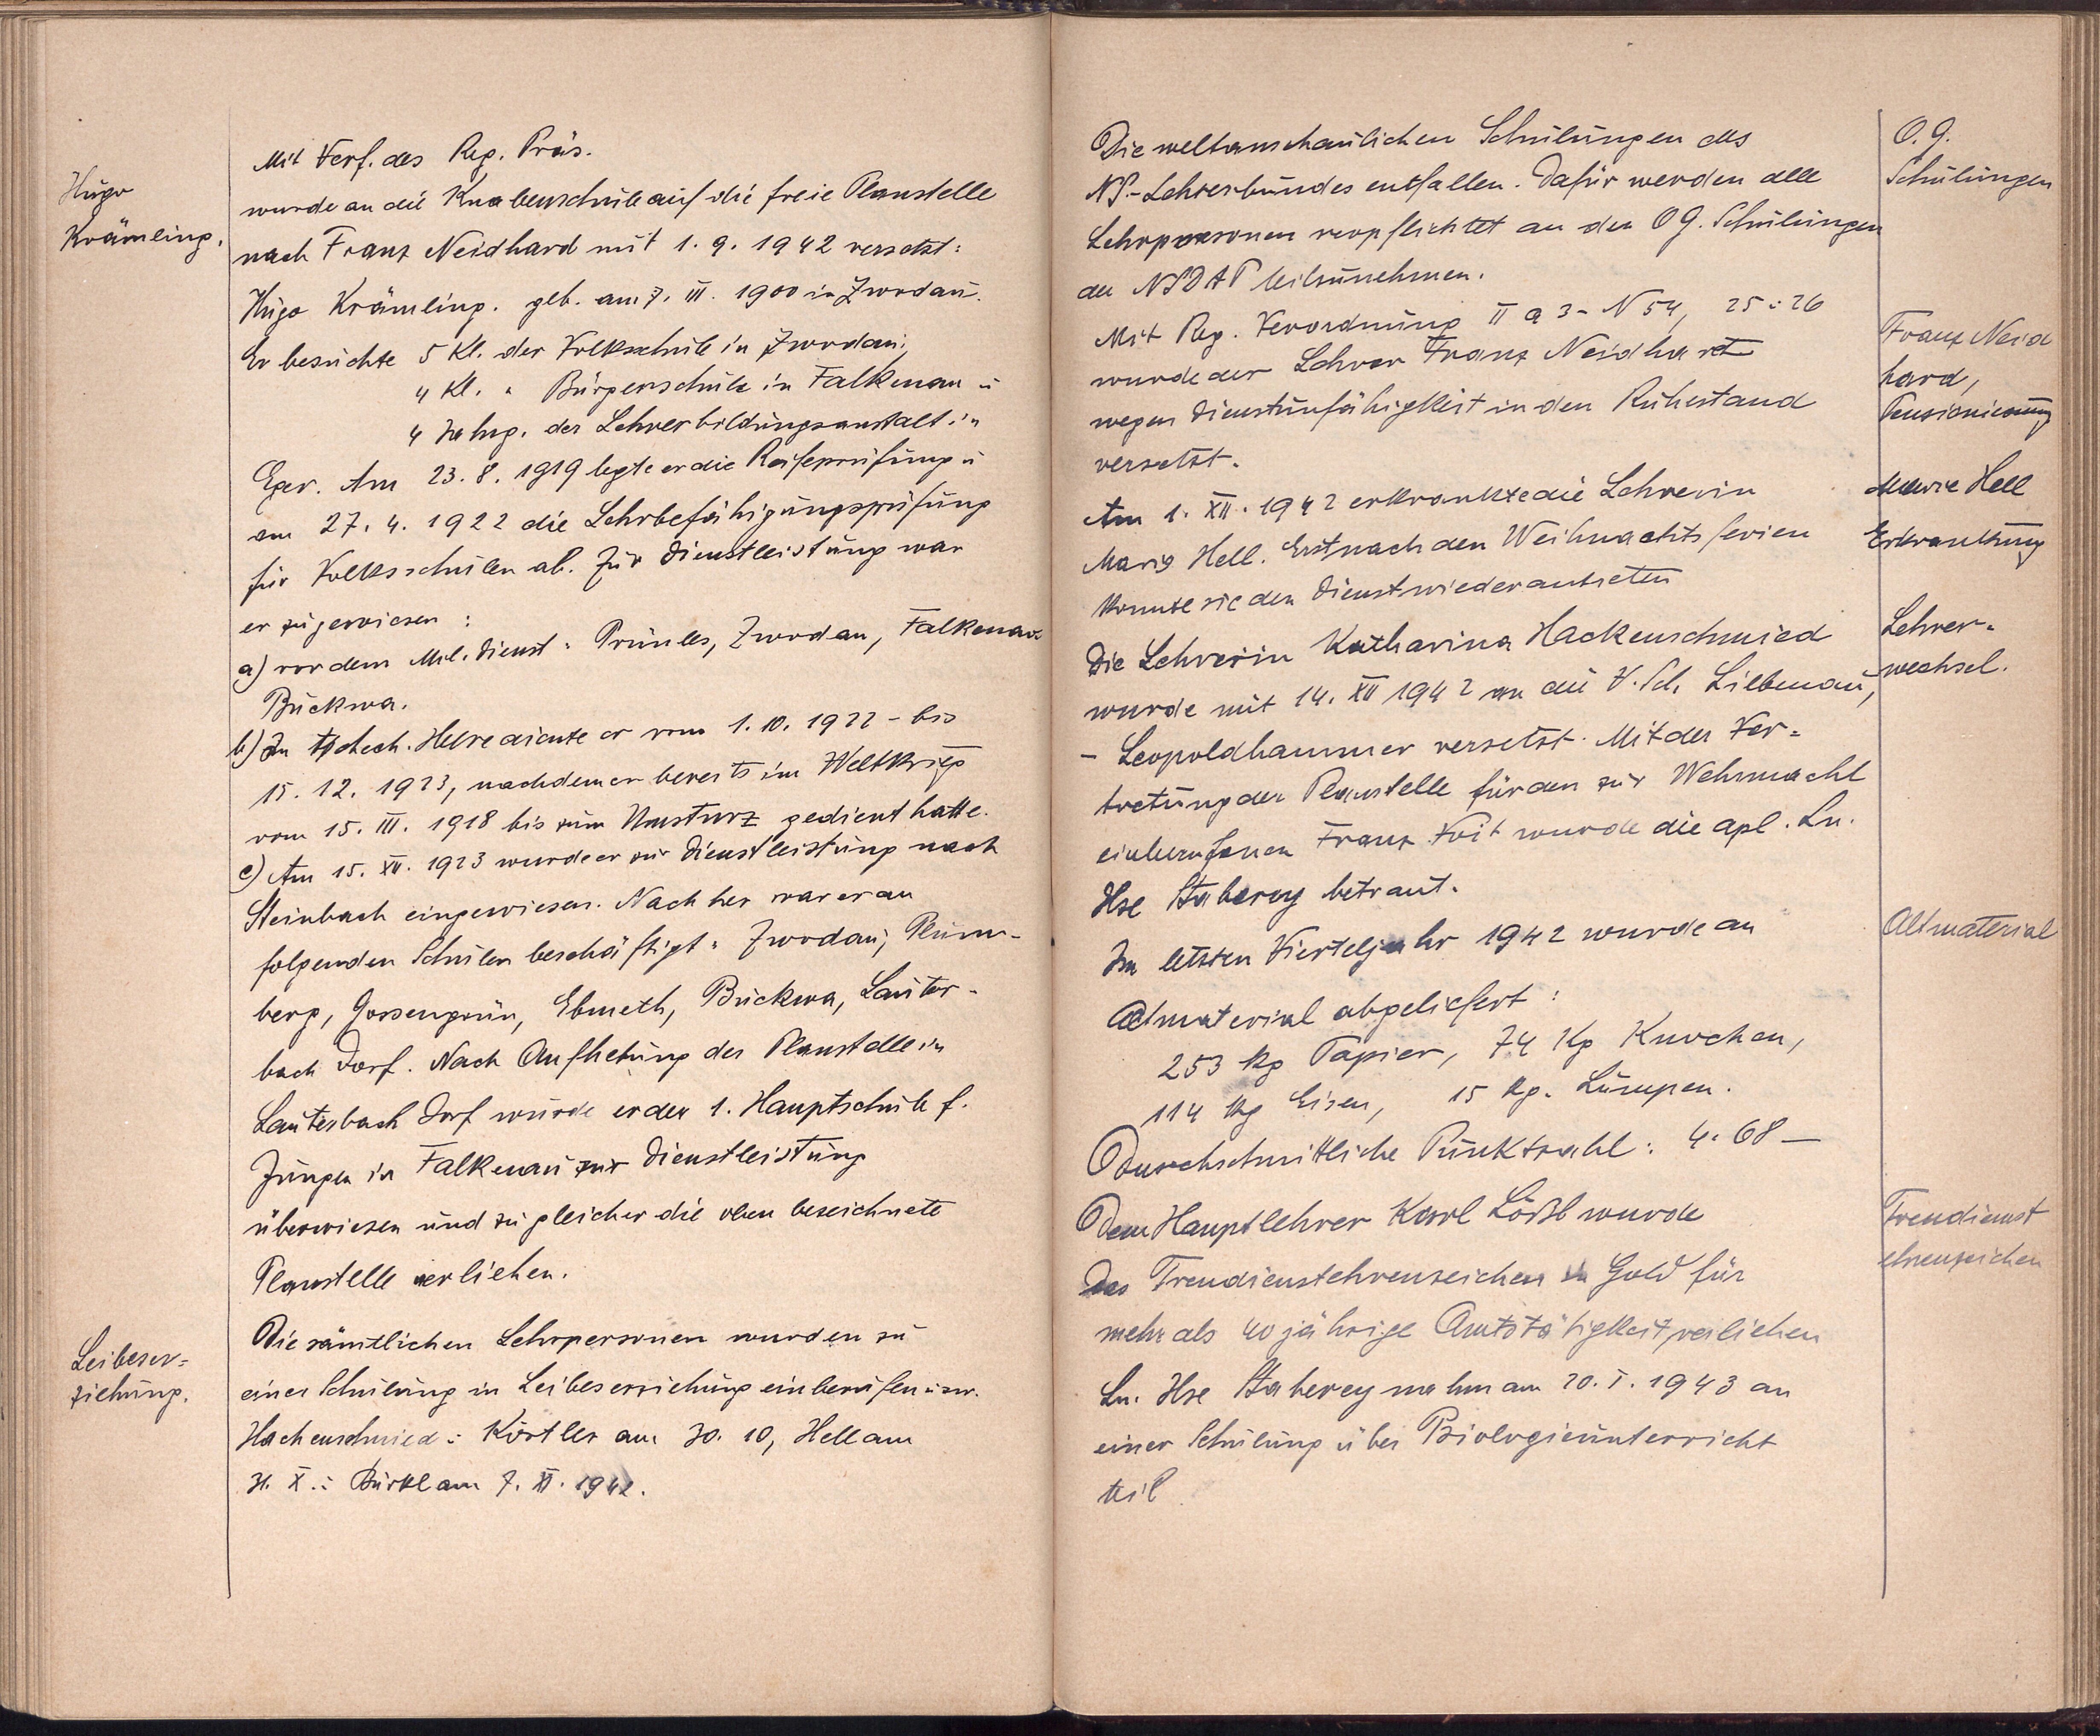 Hugo
Krämling.
Mit Verf. des Reg. Präs.
wurde an die Knabenschule auf die freie Planstelle
nach Franz Neidhard mit 1. 9. 1942 versetzt:
Hugo Krämling. geb. am 7. III. 1900 in Zwodau.
Er besuchte 5 Kl. der Volksschule in Zwodau,
4 Kl. " Bürgerschule in Falkenau u
4 Jahrg. der Lehrerbildungsanstalt in
Eger. Am 23. 8. 1919 legte er die Reifeprüfung u
am 27. 4. 1922 die Lehrbefähigungsprüfung
für Volksschulen ab. Zur Dienstleistung war
er zugewiesen:
a) vor dem Mil. Dienst: Prünles, Zwodau, Falkenau
Buckwa.
b) In tschech. Heere diente er vom 1. 10. 1922 - bis
15. 12. 1923, nachdem er bereits im Weltkrieg
vom 15. III. 1918 bis zum Umsturz gedient hatte.
c) Am 15. XII. 1923 wurde er zur Dienstleistung nach
Steinbach eingewiesen. Nachher war er an
folgenden Schulen beschäftigt: Zwodau, Plum-
berg, Gossengrün, Ebmeth, Buckwa, Lauter-
bach Dorf. Nach Aufhebung der Planstelle in
Lauterbach Dorf wurde er der 1. Hauptschule f.
Jungen in Falkenau zur Dienstleistung
überwiesen und zu gleicher die oben bezeichnete
Planstelle verliehen.
Leibeser=
ziehung.
Die sämtlichen Lehrpersonen wurden zu
einer Schulung in Leibeserziehung einberufen u zw.
Hackenschmied u Körtler am 30. 10, Hell am
31. X. u Bürkl am 7. XI. 1942.
Die weltanschaulichen Schulungen des
NS.-Lehrerbundes entfallen. Dafür werden alle
Lehrpersonen verpflichtet an den O G. Schulungen
der NSDAP teilzunehmen.
O. G.
Schulungen
Mit Reg. Verordnung II a 3 - N 54, 25 u 26
wurde der Lehrer Franz Neidhardt
wegen Dienstunfähigkeit in den Ruhestand
versetzt.
Franz Neid
hard,
Pensionierung
Am 1. XII. 1942 erkrankte die Lehrerin
Marie Hell. Erst nach den Weihnachtsferien
konnte sie den Dienst wieder antreten
Marie Hell
Erkrankung
Die Lehrerin Katharina Hackenschmied
wurde mit 14. XII 1942 an die V. Sch. Liebenau,
- Leopoldhammer versetzt. Mit der Ver=
tretung der Planstelle für den zur Wehrmacht
einberufenen Franz Voit wurde die apl. Ln.
Ilse Staberey betraut.
Lehrer=
wechsel.
Im letzten Vierteljahr 1942 wurde an
Altmaterial abgeliefert:
253 kg Papier, 74 Kg Knochen,
114 kg Eisen, 15 kg. Lumpen.
Durchschnittliche Punktzahl: 4.68 —
Altmaterial
Dem Hauptlehrer Karl Lößl wurde
das Treudienstehrenzeichen in Gold für
mehr als 40 jährige Amtstätigkeit verliehen
Treudienst
ehrenzeichen
Ln. Ilse Staberey nahm am 20. I. 1943 an
einer Schulung über Biologieunterricht
teil